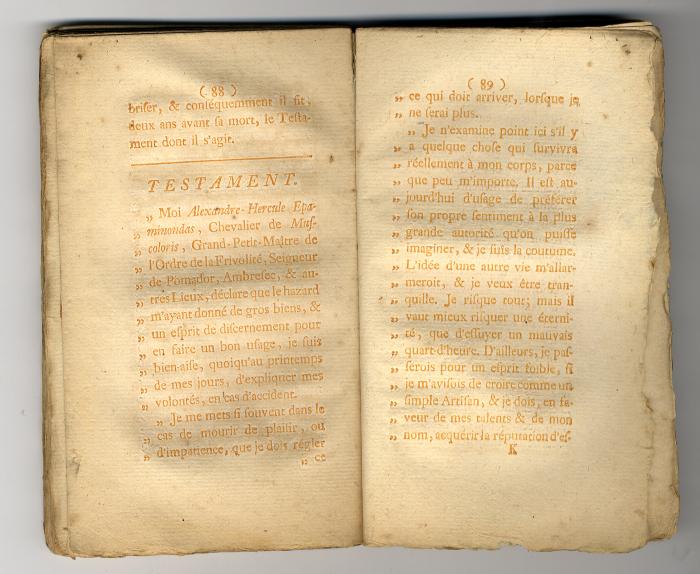 ( 88 )
briser, & conséquemment il fit,
deux ans avant sa mort, le Testa-
ment dont il s'agit.
TESTAMENT.
„ Moi Alexandre-Hercule Epa-
„ minondas, Chevalier de Mus-
„ coloris, Grand-Petit-Maître de
„ l'Ordre de la Frivolité, Seigneur
„ de Pomador, Ambresec, & au-
„ tres Lieux, déclare que le hazard
„ m'ayant donné de gros biens, &
„ un esprit de discernement pour
„ en faire un bon usage, je suis
„ bien-aise, quoiqu'au printemps
„ de mes jours, d'expliquer mes
„ volontés, en cas d'accident.
„ Je me mets si souvent dans le
„ cas de mourir de plaisir, ou
„ d'impatience, que je dois régler
„ ce
( 89 )
„ ce qui doit arriver, lorsque je
„ ne serai plus.
„ Je n'examine point ici s'il y
„ a quelque chose qui survivra
„ réellement à mon corps, parce
„ que peu m'importe. Il est au-
„ jourd'hui d'usage de préférer
„ son propre sentiment à la plus
„ grande autorité qu'on puisse
„ imaginer, & je suis la coutume.
„ L'idée d'une autre vie m'allar-
„ meroit, & je veux être tran-
„ quille. Je risque tout; mais il
„ vaut mieux risquer une éterni-
„ té, que d'essuyer un mauvais
„ quart-d'heure. D'ailleurs, je pas-
„ serois pour un esprit foible, si
„ je m'avisois de croire comme un
„ simple Artisan, & je dois, en fa-
„ veur de mes talents & de mon
„ nom, acquérir la réputation d'es-
K